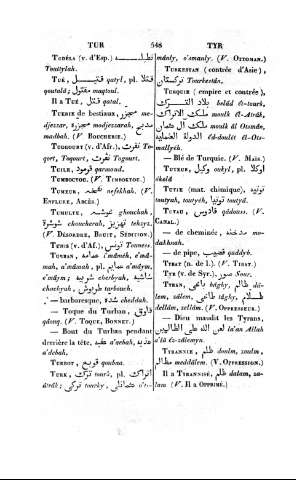 TUR 548 TYR
TUDÉLA (v. d'Esp.) تطيلة
Toutylah.
TUÉ, قتيل qatyl, pl. قتلا
qoutalâ; مقتول maqtoul.
Il a TUÉ, قتل qatal.
TUERIE de bestiaux, مجزر me-
djezzar, مجزره modjezzarah, مدبح
madbah (V. BOUCHERIE.)
TUGGURT (v. d'Afr.), تقرت To-
gort, Toqourt, تغورت Togourt.
TUILE, قرمود qarmoud.
TUMBOCTOU. (V. TINBOKTOU.)
TUMEUR, نفخه nefekhah. (V.
ENFLURE, ABCÈS.)
TUMULTE, غوشه ghouchah,
شوشره choucherah, تهزيز tehzyz.
(V. DÉSORDRE, BRUIT, SÉDITION.)
TUNIS (v. d'Af.), تونس Touness.
TURBAN, عمامه
mah, a'mâmah, pl. عمايم a'mâym,
a'mâym; شربيه cherbyeh, شاشيه
chachyah, طربوش tarbouch.
— burbouresque, شده cheddah.
— Toque du Turban, قاووق
qâouq. (V. TOQUE, BONNET.)
— Bout du Turban pendant
derrière la tête, عدبه a'debah, عدبه
a'debah.
TURBOT, قوبع qoubaa.
TURK, ترك tourk, pl. اتراك
atrâk; تركي tourky, عثمانلي o't-
mânly, o'smanly. (V. OTTOMAN.)
TURKESTAN (contrée d'Asie),
تركستان Tourkestân.
TURQUIE (empire et contrée),
بلاد الترك belâd êt-tourk,
ملك الاتراك moulk êl-Atrâk,
ملك ال عثمان moulk âl Otsmân,
الدولة العثمانلية êd-doulêt êl-Ots-
mallyêh.
— Blé de Turquie. (V. MAÏS.)
TUTEUR, وكيل oukyl, pl. وكلا
oukalâ.
TUTIE (mat. chimique), توتيه
toutyah, toutyêh, توتيا toutyâ.
TUYAU, قادوس qâdouss. (V.
CANAL.)
— de cheminée, مدخنه mo-
dakhnah.
— de pipe, قصب qaddyb.
TYBAT (n. de l.). (V. TIBAT.)
TYR (v. de Syr.), صور Sour.
TYRAN, باغي bâghy, ظالم dâ-
lem, zâlem, طاغي tâghy, ظلام
dellâm, zellâm. (V. OPPRESSEUR.)
— Dieu maudit les Tyrans,
لعن الله على الظالمين la'an Allah
a'lä êz-zâlemyn.
TYRANNIE, ظلم doulm, zoulm,
مظالم meddâlem. (V. OPPRESSION.)
Il a TYRANNISÉ, ظلم dalam, za-
lam (V. Il a OPPRIMÉ.)